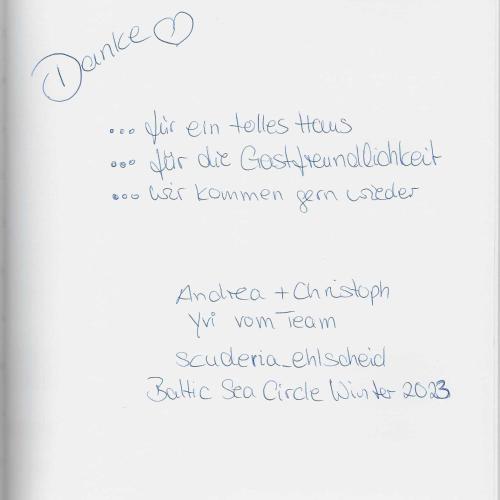 Danke ♡
... für ein tolles Haus
... für die Gastfreundlichkeit
... wir kommen gern wieder
Andrea + Christoph
Yvi vom Team
scuderia_ehlscheid
Baltic Sea Circle Winter 2023